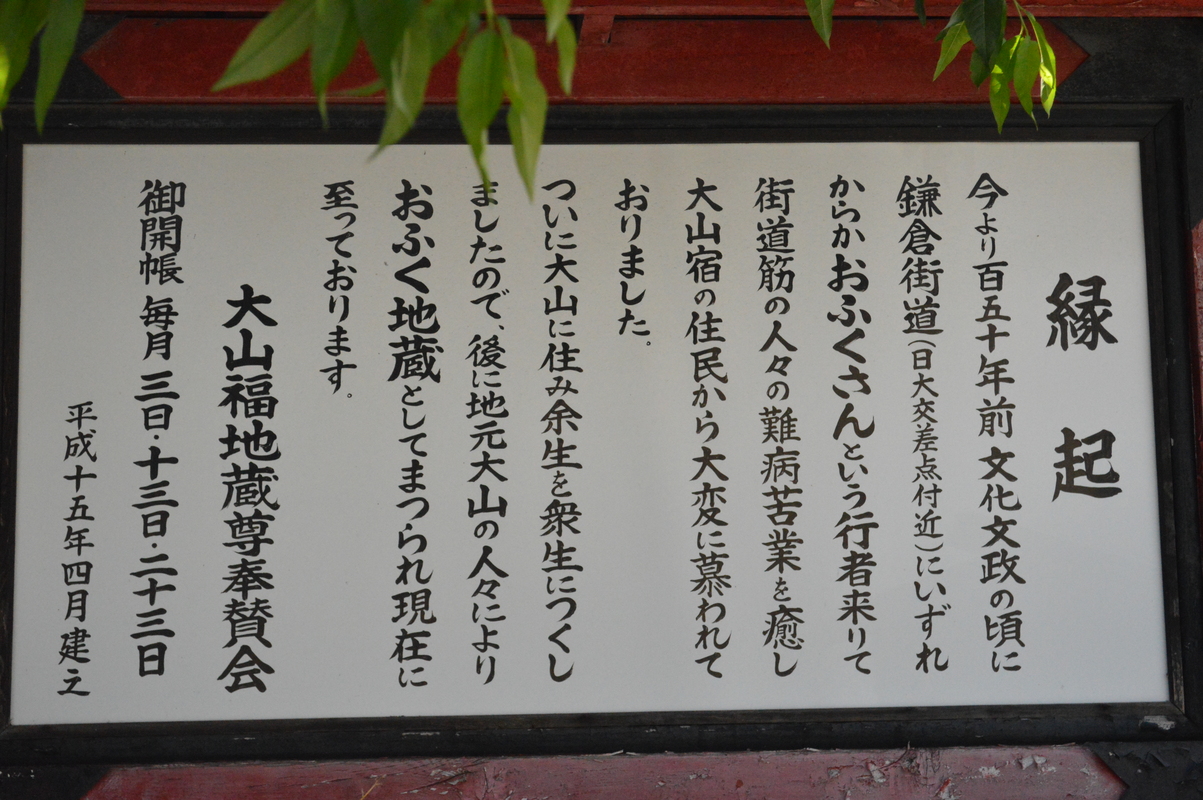 縁起
今より百五十年前文化文政の頃に
鎌倉街道(日大交差点付近)にいずれ
からかおふくさんという行者来りて
街道筋の人々の難病苦業を癒し
大山宿の住民から大変に慕われて
おりました。
ついに大山に住み余生を衆生につくし
ましたので、後に地元大山の人々により
おふく地蔵としてまつられ現在に
至っております。
大山福地蔵尊奉賛会
御開帳 毎月 三日・十三日・二十三日
平成十五年四月建之